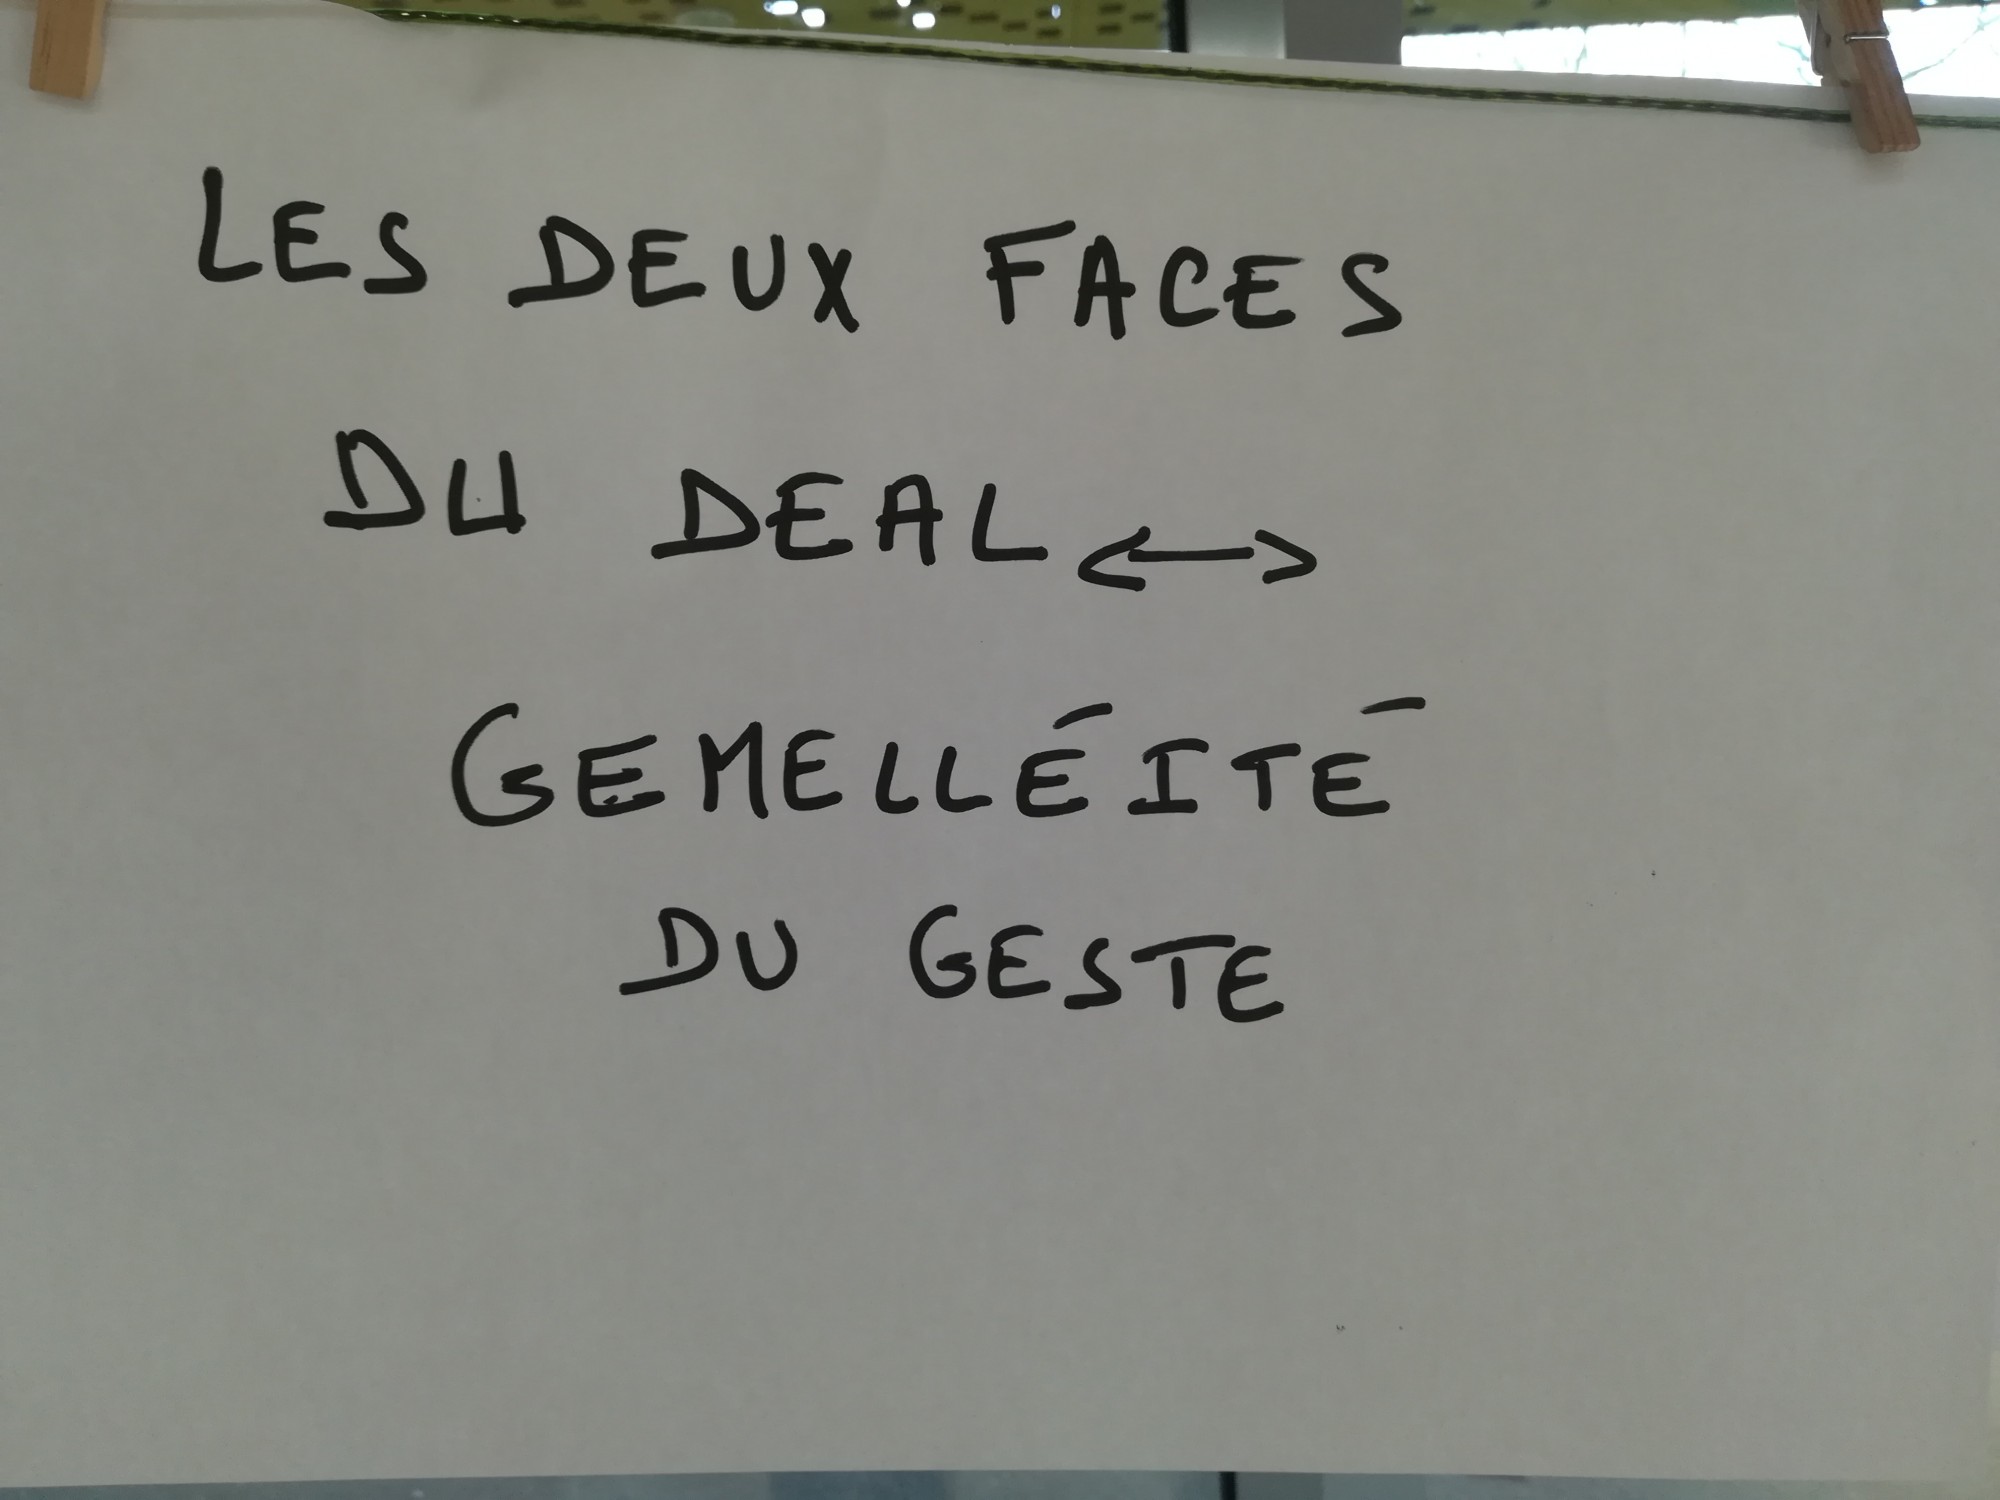 LES DEUX FACES
DU DEAL ↔
GEMELLÉITÉ
DU GESTE